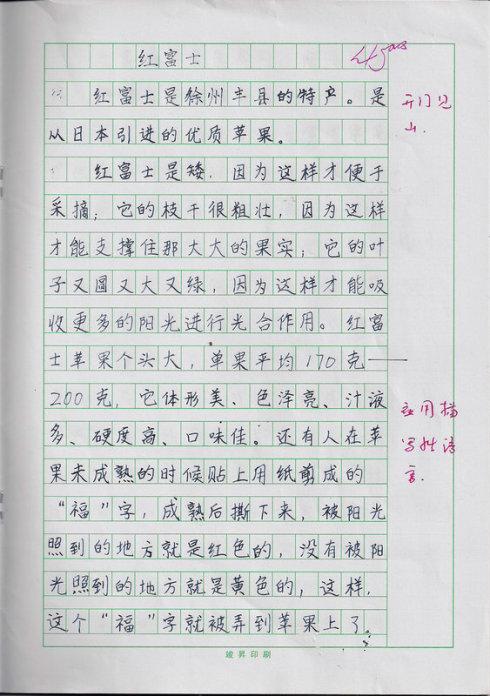 红富士
红富士是徐州丰县的特产。是
从日本引进的优质苹果。
红富士是矮，因为这样才便于
采摘；它的枝干很粗壮，因为这样
才能支撑住那大大的果实；它的叶
子又圆又大又绿，因为这样才能吸
收更多的阳光进行光合作用。红富
士苹果个头大，单果平均170克——
200克，它体形美、色泽亮、汁液
多、硬度高、口味佳。还有人在苹
果未成熟的时候贴上用纸剪成的
“福”字，成熟后撕下来，被阳光
照到的地方就是红色的，没有被阳
光照到的地方就是黄色的，这样，
这个“福”字就被弄到苹果上了。
开门见
山.
应用描
写性语
言.
竣昇印刷